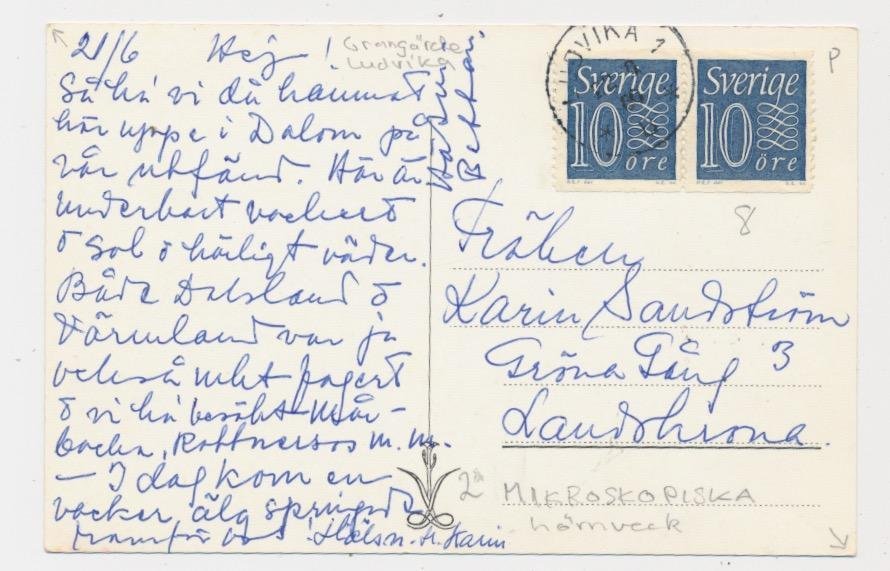 21/6 Hej!
Grangärde
Ludvika
Så ha vi då hamnat
här uppe i Dalom på
vår utfärd. Här är
underbart vackert
o sol o härligt väder.
Både Dalsland o
Värmland var ju
också mkt fagert
o vi ha besökt Mår-
backa, Rottneros m.m.
— I dag kom en
vacker älg springande
framför oss! Hälsn. fr. Karin
LUDVIKA 1
Sverige
10 öre
Sverige
10 öre
P
8
Fröken
Karin Sandström
Gröna Gång 3
Landskrona.
MIKROSKOPISKA
hörnveck